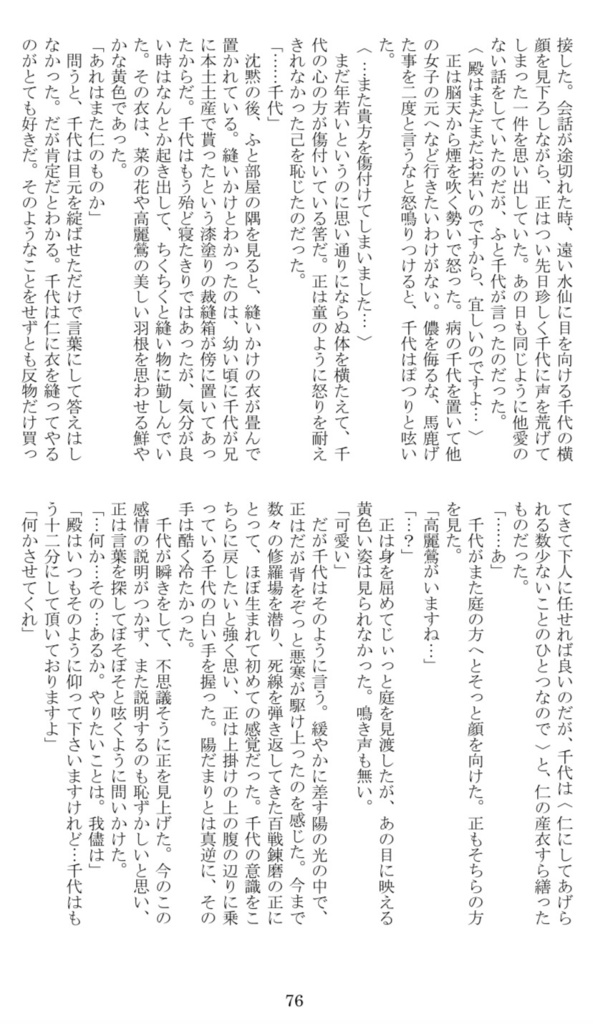 接した。会話が途切れた時、遠い水仙に目を向ける千代の横
顔を見下ろしながら、正はつい先日珍しく千代に声を荒げて
しまった一件を思い出していた。あの日も同じように他愛の
ない話をしていたのだが、ふと千代が言ったのだった。
〈 殿はまだまだお若いのですから、宜しいのですよ… 〉
正は脳天から煙を吹く勢いで怒った。病の千代を置いて他
の女子の元へなど行きたいわけがない。儂を侮るな、馬鹿げ
た事を二度と言うなと怒鳴りつけると、千代はぽつりと呟い
た。
〈 …また貴方を傷付けてしまいました… 〉
まだ年若いというのに思い通りにならぬ体を横たえて、千
代の心の方が傷付いている筈だ。正は童のように怒りを耐え
きれなかった己を恥じたのだった。
「……千代」
沈黙の後、ふと部屋の隅を見ると、縫いかけの衣が畳んで
置かれている。縫いかけとわかったのは、幼い頃に千代が兄
に本土土産で貰ったという漆塗りの裁縫箱が傍に置いてあっ
たからだ。千代はもう殆ど寝たきりではあったが、気分が良
い時はなんとか起き出して、ちくちくと縫い物に勤しんでい
た。その衣は、菜の花や高麗鶯の美しい羽根を思わせる鮮や
かな黄色であった。
「あれはまた仁のものか」
問うと、千代は目元を綻ばせただけで言葉にして答えはし
なかった。だが肯定だとわかる。千代は仁に衣を縫ってやる
のがとても好きだ。そのようなことをせずとも反物だけ買っ
てきて下人に任せれば良いのだが、千代は〈 仁にしてあげら
れる数少ないことのひとつなので 〉と、仁の産衣すら繕った
ものだった。
「……あ」
千代がまた庭の方へとそっと顔を向けた。正もそちらの方
を見た。
「高麗鶯がいますね…」
「…？」
正は身を屈めてじぃっと庭を見渡したが、あの目に映える
黄色い姿は見られなかった。鳴き声も無い。
「可愛い」
だが千代はそのように言う。緩やかに差す陽の光の中で、
正はだが背をぞっと悪寒が駆け上ったのを感じた。今まで
数々の修羅場を潜り、死線を弾き返してきた百戦錬磨の正に
とって、ほぼ生まれて初めての感覚だった。千代の意識をこ
ちらに戻したいと強く思い、正は上掛けの上の腹の辺りに乗
っている千代の白い手を握った。陽だまりとは真逆に、その
手は酷く冷たかった。
千代が瞬きをして、不思議そうに正を見上げた。今のこの
感情の説明がつかず、また説明するのも恥ずかしいと思い、
正は言葉を探してぼそぼそと呟くように問いかけた。
「…何か…その…あるか。やりたいことは。我儘は」
「殿はいつもそのように仰って下さいますけれど…千代はも
う十二分にして頂いておりますよ」
「何かさせてくれ」
76